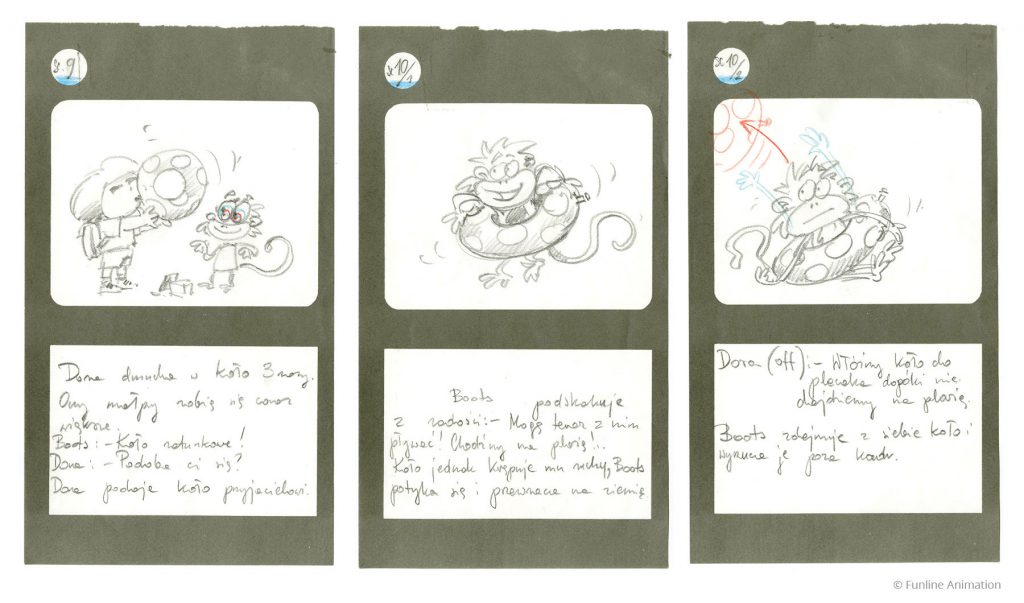 Sc. 9
Dora dmucha w koło 3 razy.
Oczy małpy robią się coraz
większe.
Boots: - Koło ratunkowe!
Dora: - Podoba ci się?
Dora podaje koło przyjacielowi.
Sc 10/1
Boots podskakuje
z radości: - Mogę teraz z nim
pływać! Chodźmy na plażę!..
Koło jednak krępuje mu ruchy, Boots
potyka się i przewraca na ziemię.
Sc 10/2
Dora (off): - Włóżmy koło do
plecaka dopóki nie
dojdziemy na plażę.
Boots zdejmuje z siebie koło i
wyrzuca je poza kadr.
© Funline Animation